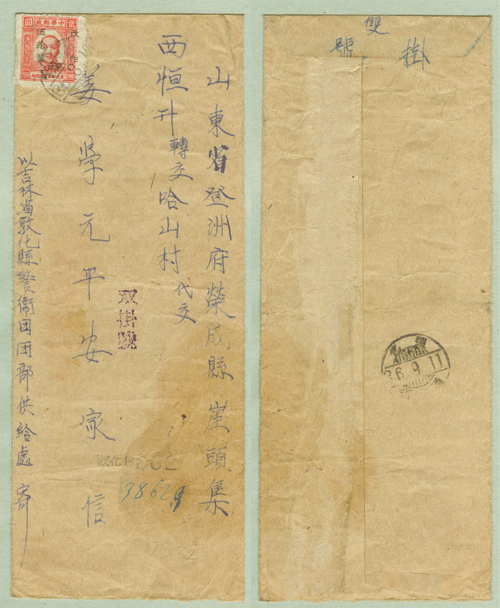 山東省登洲府榮成縣崖頭集
西恒升轉交哈山村代交
姜學元平安家信
双掛號
以吉林省敦化縣警衛団団部供給處寄
雙掛
號
36.9.11